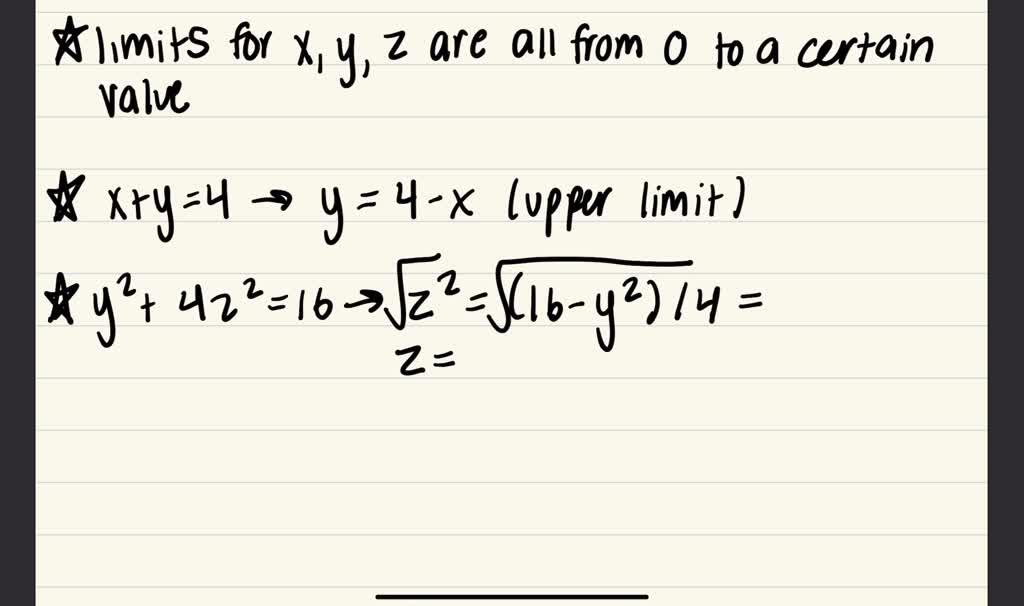 ☆ limits for x, y, z are all from 0 to a certain
value
☆ x+y=4 → y = 4-x (upper limit)
☆ y² + 4z² = 16 → √z² = √(16-y²)/4 =
z =